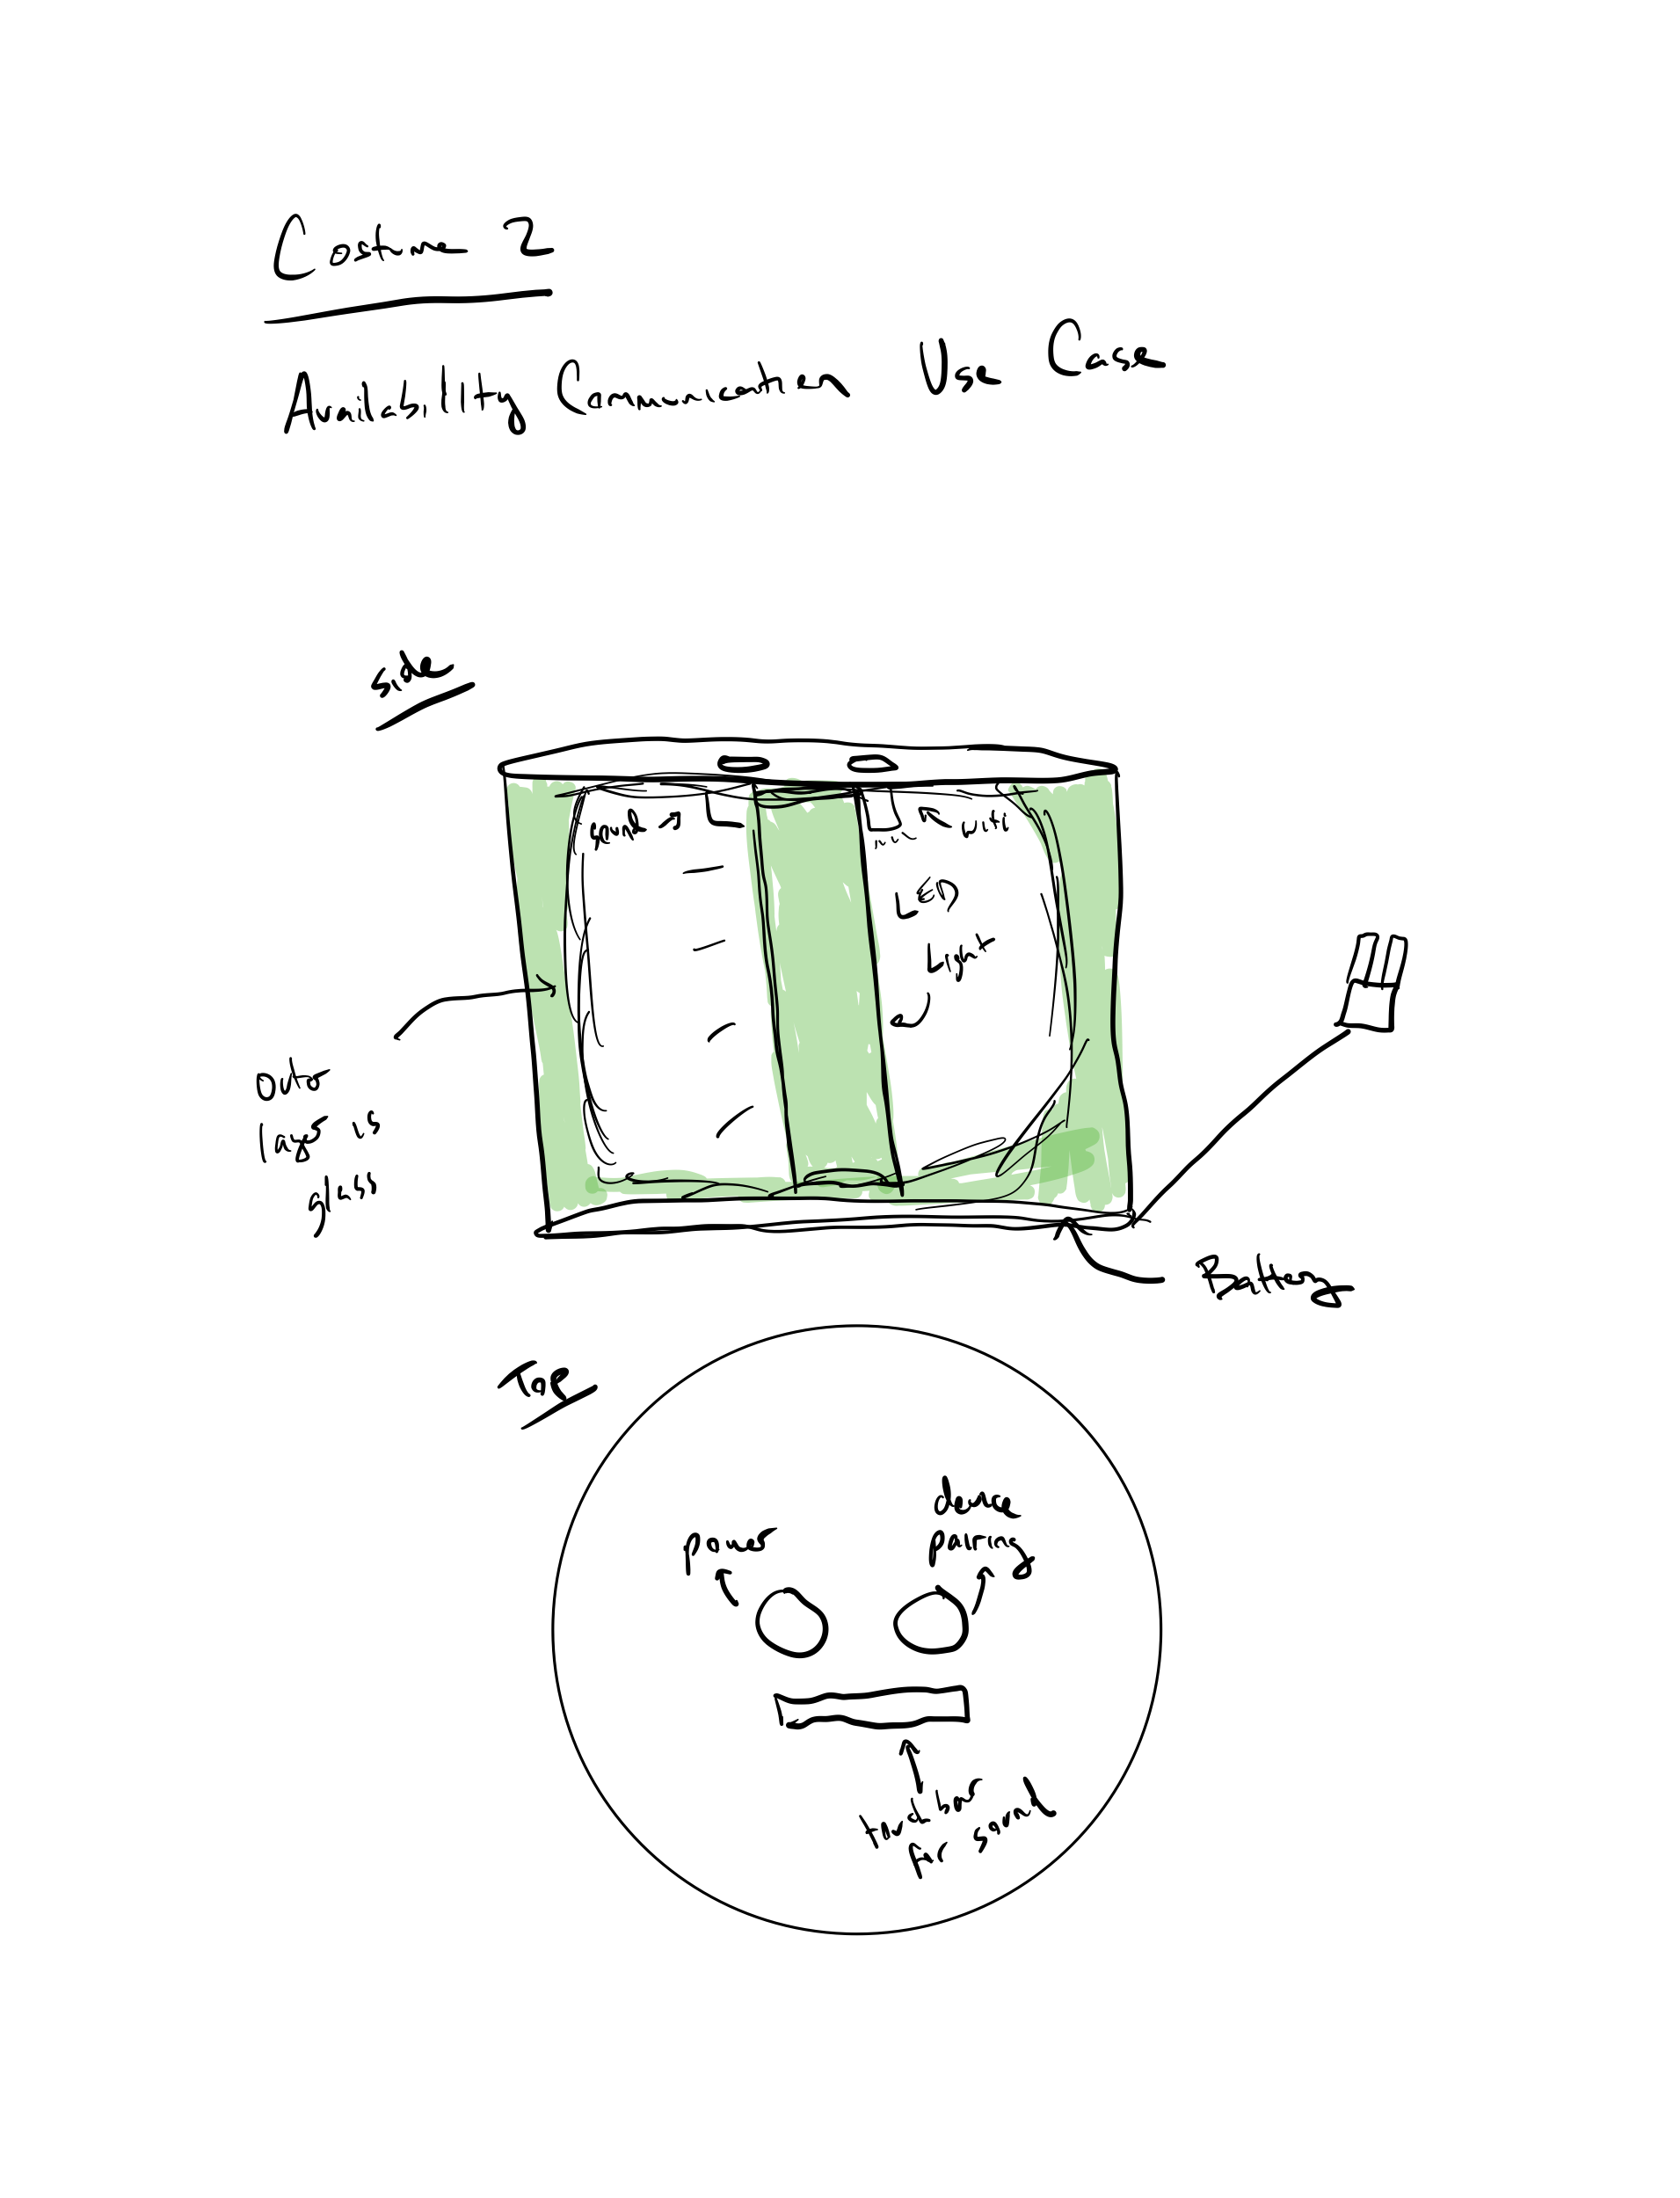 Costume 2
Availability Communication Use Case
side
sound
wifi
LED
Light
outer
layer is
glass
Battery
Top
power
device
pairing
touch bar
for sound